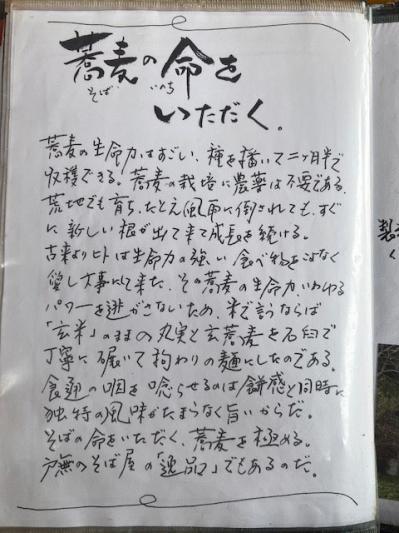 蕎麦の命を
そば いのち
いただく。
蕎麦の生命力はすごい、種を播いて二ヶ月半で
収穫できる。蕎麦の栽培に農薬は不要である。
荒地でも育ち、たとえ風雨に倒されても、すぐ
に新しい根が出て来て成長を続ける。
古来よりヒトは生命力の強い食べ物をこよなく
愛し大事にして来た。その蕎麦の生命力、いわゆる
パワーを逃がさないため、米で言うならば
「玄米」のままの丸実と玄蕎麦を石臼で
丁寧に碾いて拘わりの麺にしたのである。
食通の咽を唸らせるのは餅感と同時に
独特の風味がたまらなく旨いからだ。
そばの命をいただく、蕎麦を極める。
のそば屋の「逸品」でもあるのだ。
製